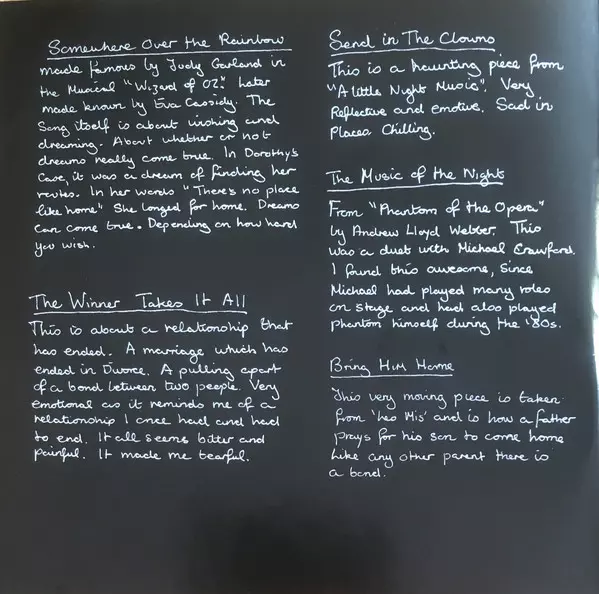 Somewhere Over the Rainbow
made famous by Judy Garland in
the Musical "Wizard of OZ". Later
made known by Eva Cassidy. The
Song itself is about wishing and
dreaming. About whether or not
dreams really come true. In Dorothy's
Case, it was a dream of finding her
routes. In her words "There's no place
like home" She longed for home. Dreams
can come true. Depending on how hard
you wish.
The Winner Takes It All
This is about a relationship that
has ended. A marriage which has
ended in Divorce. A pulling apart
of a bond between two people. Very
emotional as it reminds me of a
relationship I once had and had
to end. It all seems bitter and
painful. It made me tearful.
Send in The Clowns
This is a haunting piece from
"A little Night Music". Very
Reflective and emotive. Sad in
places Chilling.
The Music of the Night
From "Phantom of the Opera"
by Andrew Lloyd Webber. This
was a duet with Michael Crawford.
I found this awesome, since
Michael had played many roles
on stage and had also played
phantom himself during the '80s.
Bring Him Home
This very moving piece is taken
from 'Les Mis' and is how a father
prays for his son to come home
Like any other parent there is
a bond.